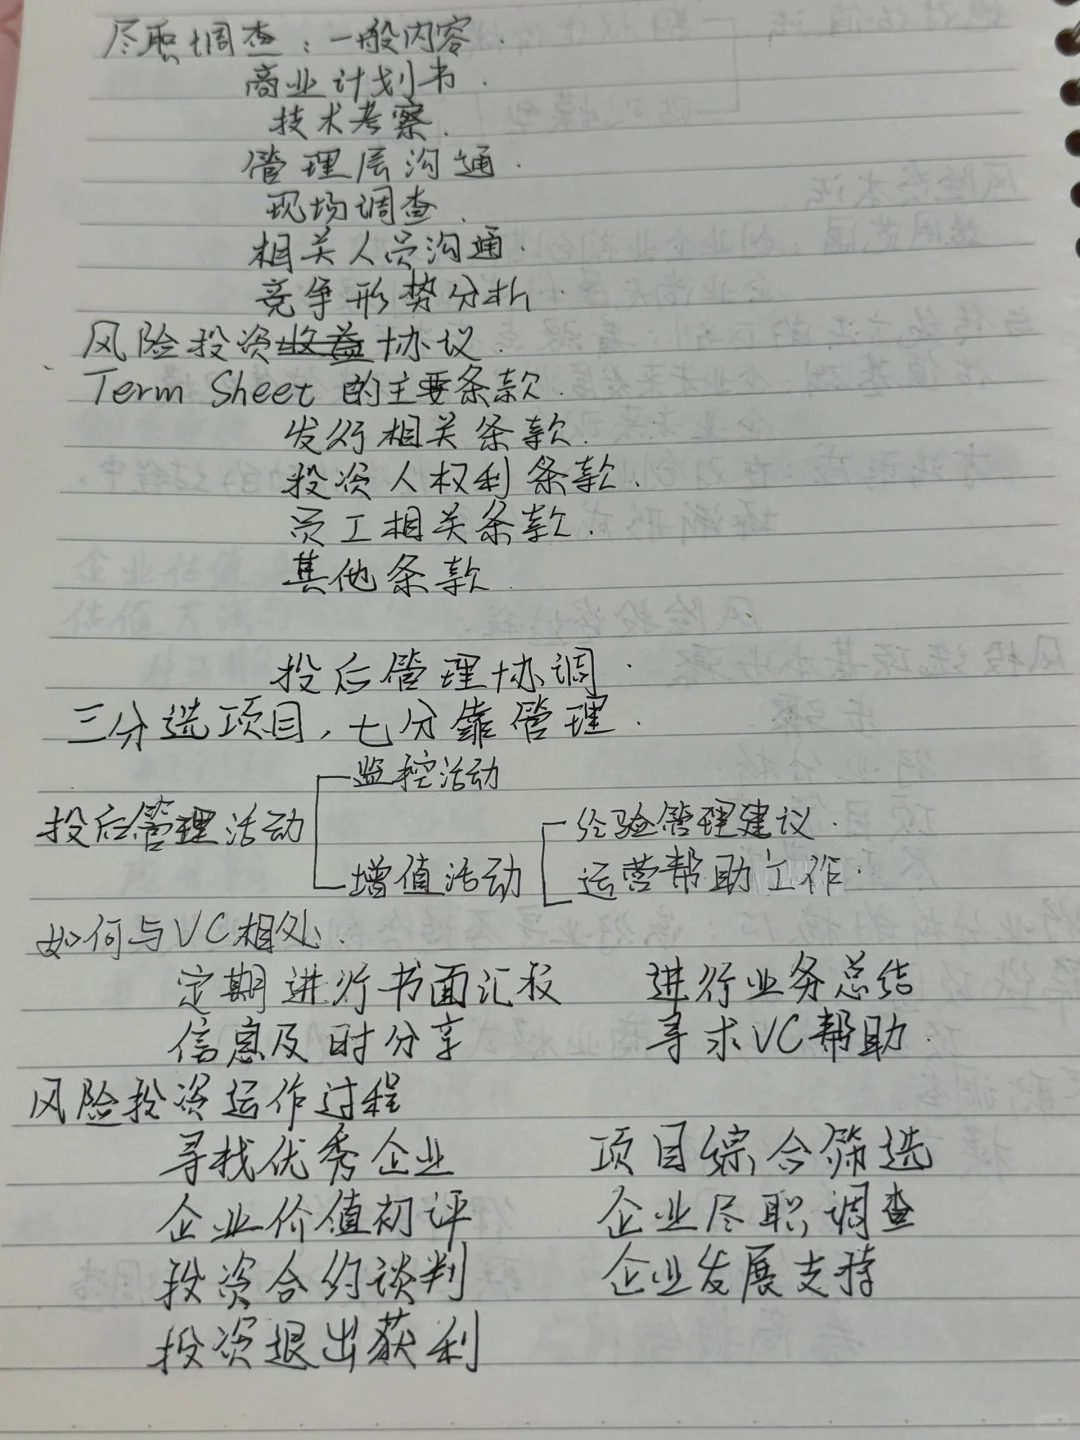 尽职调查：一般内容.
商业计划书.
技术考察.
管理层沟通.
现场调查.
相关人员沟通.
竞争形势分析.
风险投资收益协议.
Term Sheet 的主要条款.
发行相关条款.
投资人权利条款.
员工相关条款.
其他条款.
投后管理协调.
三分选项目，七分靠管理.
监控活动
投后管理活动
经验管理建议.
增值活动
运营帮助工作.
如何与VC相处.
定期进行书面汇报 进行业务总结
信息及时分享 寻求VC帮助.
风险投资运作过程
寻找优秀企业 项目综合筛选
企业价值初评 企业尽职调查
投资合约谈判 企业发展支持
投资退出获利